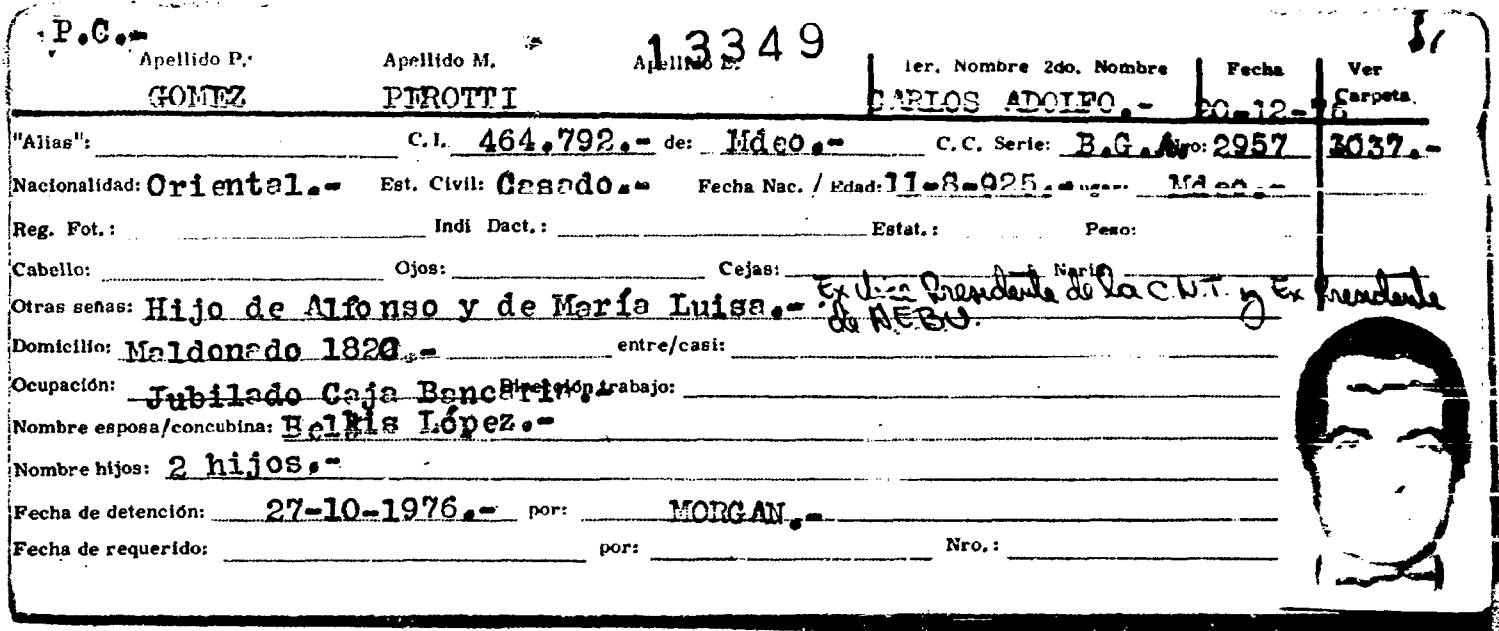 P.C.-
13349
Apellido P. Apellido M. Apellido 1er. Nombre 2do. Nombre Fecha Ver Carpeta
GOMEZ PIROTTI CARLOS ADOLFO.- 20-12-76
"Alias": C.I. 464.792.- de: Mdeo.- C.C. Serie: B.G.A. Nro: 2957 3037.-
Nacionalidad: Oriental.- Est. Civil: Casado.- Fecha Nac. / Edad: 11-8-925.- Lugar: Mdeo.-
Reg. Fot.: Indi Dact.: Estat.: Peso:
Cabello: Ojos: Cejas: Nariz
Otras señas: Hijo de Alfonso y de María Luisa.- Ex Vice Presidente de la C.N.T. y Ex Presidente
de AEBU.
Domicilio: Maldonado 1820.- entre/casi:
Ocupación: Jubilado Caja Bancaria.- Dirección trabajo:
Nombre esposa/concubina: Belkis López.-
Nombre hijos: 2 hijos.-
Fecha de detención: 27-10-1976.- por: MORGAN.-
Fecha de requerido: por: Nro.: